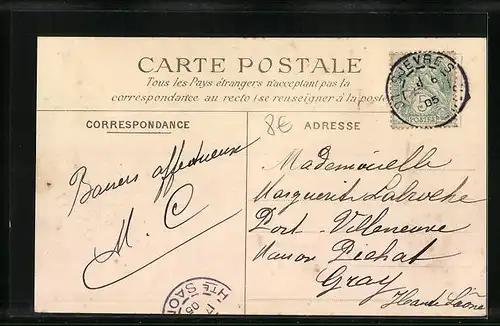 CARTE POSTALE
Tous les Pays étrangers n'acceptent pas la
correspondance au recto (se renseigner à la poste
CORRESPONDANCE
8€
ADRESSE
Baisers affectueux
M. C
Mademoiselle
Marguerite Laroche
Port Villeneuve
Maison Pichat
Gray
Haute Saône
POSTES
05
Hte SAON
05